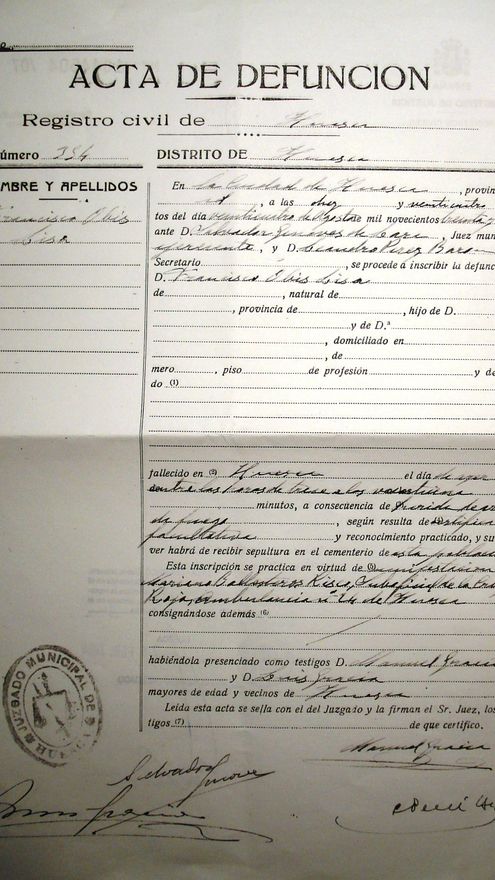 ACTA DE DEFUNCION
Registro civil de Huesca
úmero 394 DISTRITO DE Huesca
MBRE Y APELLIDOS
Francisco Obis
Lisa
En la Ciudad de Huesca, provin
, a las once y veinticuatro
tos del día veinticinco de Agosto de mil novecientos treinta
ante D. Salvador , Juez mun
, y D. Leandro Perez Bara
Secretario , se procede á inscribir la defunc
D. Francisco Obis Lisa
de , natural de
, provincia de , hijo de D.
y de D.ª
, domiciliado en
, de
mero , piso de profesión y de
do (1)
fallecido en (2) Huesca el día de ayer
entre las horas de trece a las veintiuna
minutos, a consecuencia de herida de
de fuego , según resulta de certifica
facultativa y reconocimiento practicado, y su
ver habrá de recibir sepultura en el cementerio de esta poblacion
Esta inscripción se practica en virtud de manifestacion
Mariano Ballesteros Risco, de la Cruz
Roja, ambulancia nº 24 de Huesca
consignándose además (6)
habiéndola presenciado como testigos D. Manuel Gracia
y D. Luis Gracia
mayores de edad y vecinos de Huesca
Leída esta acta se sella con el del Juzgado y la firman el Sr. Juez, los
tigos (7) de que certifico.
JUZGADO MUNICIPAL DE
Manuel Gracia
Salvador